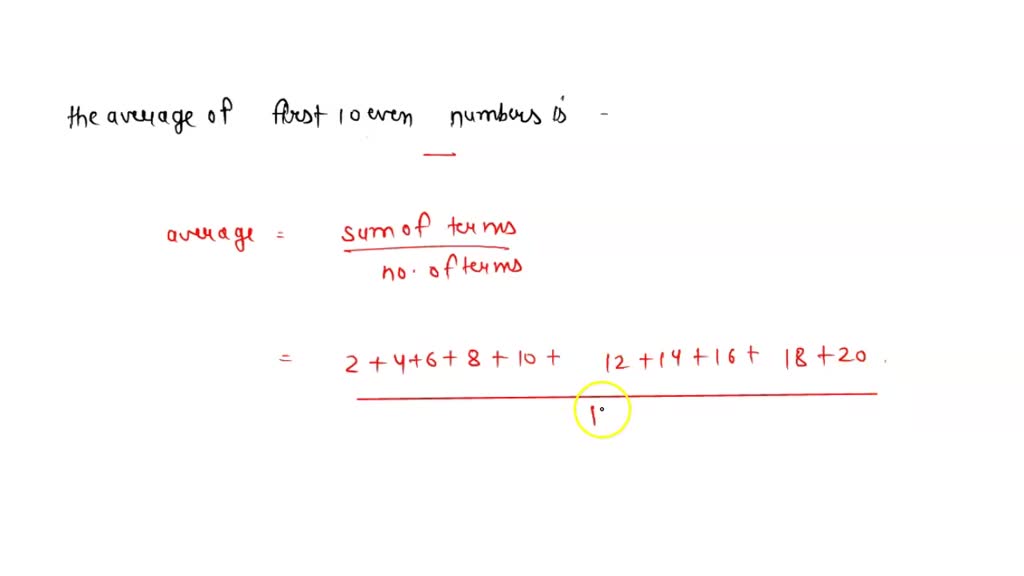 the average of first 10 even numbers is -
average = sum of terms
no. of terms
= 2 + 4 + 6 + 8 + 10 + 12 + 14 + 16 + 18 + 20 .
1